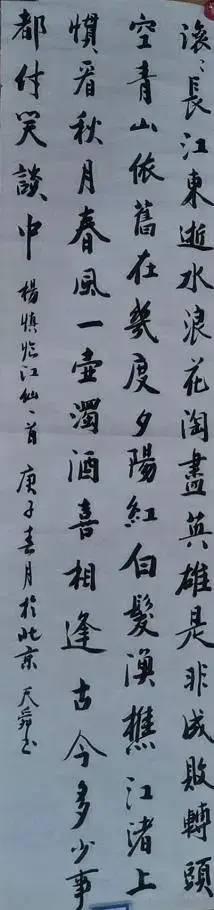 滚〻長江東逝水浪花淘盡英雄是非成敗轉頭
空青山依舊在幾度夕陽紅白髮漁樵江渚上
慣看秋月春風一壺濁酒喜相逢古今多少事
都付笑談中 楊慎臨江仙一首 庚子春月於北京 天舜書